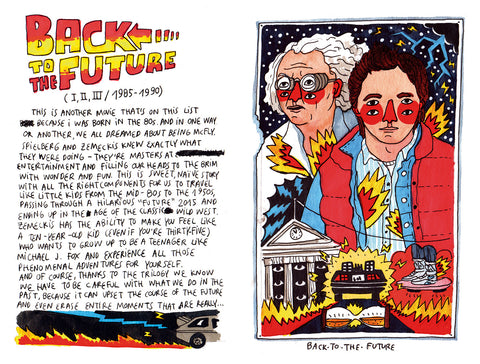 BACK
TO
THE FUTURE
(I, II, III / 1985-1990)
THIS IS ANOTHER MOVIE THAT'S ON THIS LIST
BECAUSE I WAS BORN IN THE 80S AND IN ONE WAY
OR ANOTHER, WE ALL DREAMED ABOUT BEING MCFLY.
SPIELBERG AND ZEMECKIS KNEW EXACTLY WHAT
THEY WERE DOING - THEY'RE MASTERS AT
ENTERTAINMENT AND FILLING OUR HEADS TO THE BRIM
WITH WONDER AND FUN. THIS IS SWEET, NAÏVE STORY
WITH ALL THE RIGHT COMPONENTS FOR US TO TRAVEL
LIKE LITTLE KIDS FROM THE MID-80S TO THE 1950S,
PASSING THROUGH A HILARIOUS "FUTURE" 2015 AND
ENDING UP IN THE AGE OF THE CLASSIC WILD WEST.
ZEMECKIS HAS THE ABILITY TO MAKE YOU FEEL LIKE
A TEN-YEAR-OLD KID (EVEN IF YOU'RE THIRTYFIVE)
WHO WANTS TO GROW UP TO BE A TEENAGER LIKE
MICHAEL J. FOX AND EXPERIENCE ALL THOSE
PHENOMENAL ADVENTURES FOR YOURSELF.
AND OF COURSE, THANKS TO THE TRILOGY WE KNOW
WE HAVE TO BE CAREFUL WITH WHAT WE DO IN THE
PAST, BECAUSE IT CAN UPSET THE COURSE OF THE FUTURE
AND EVEN ERASE ENTIRE MOMENTS THAT ARE REALLY...
BACK-TO-THE-FUTURE